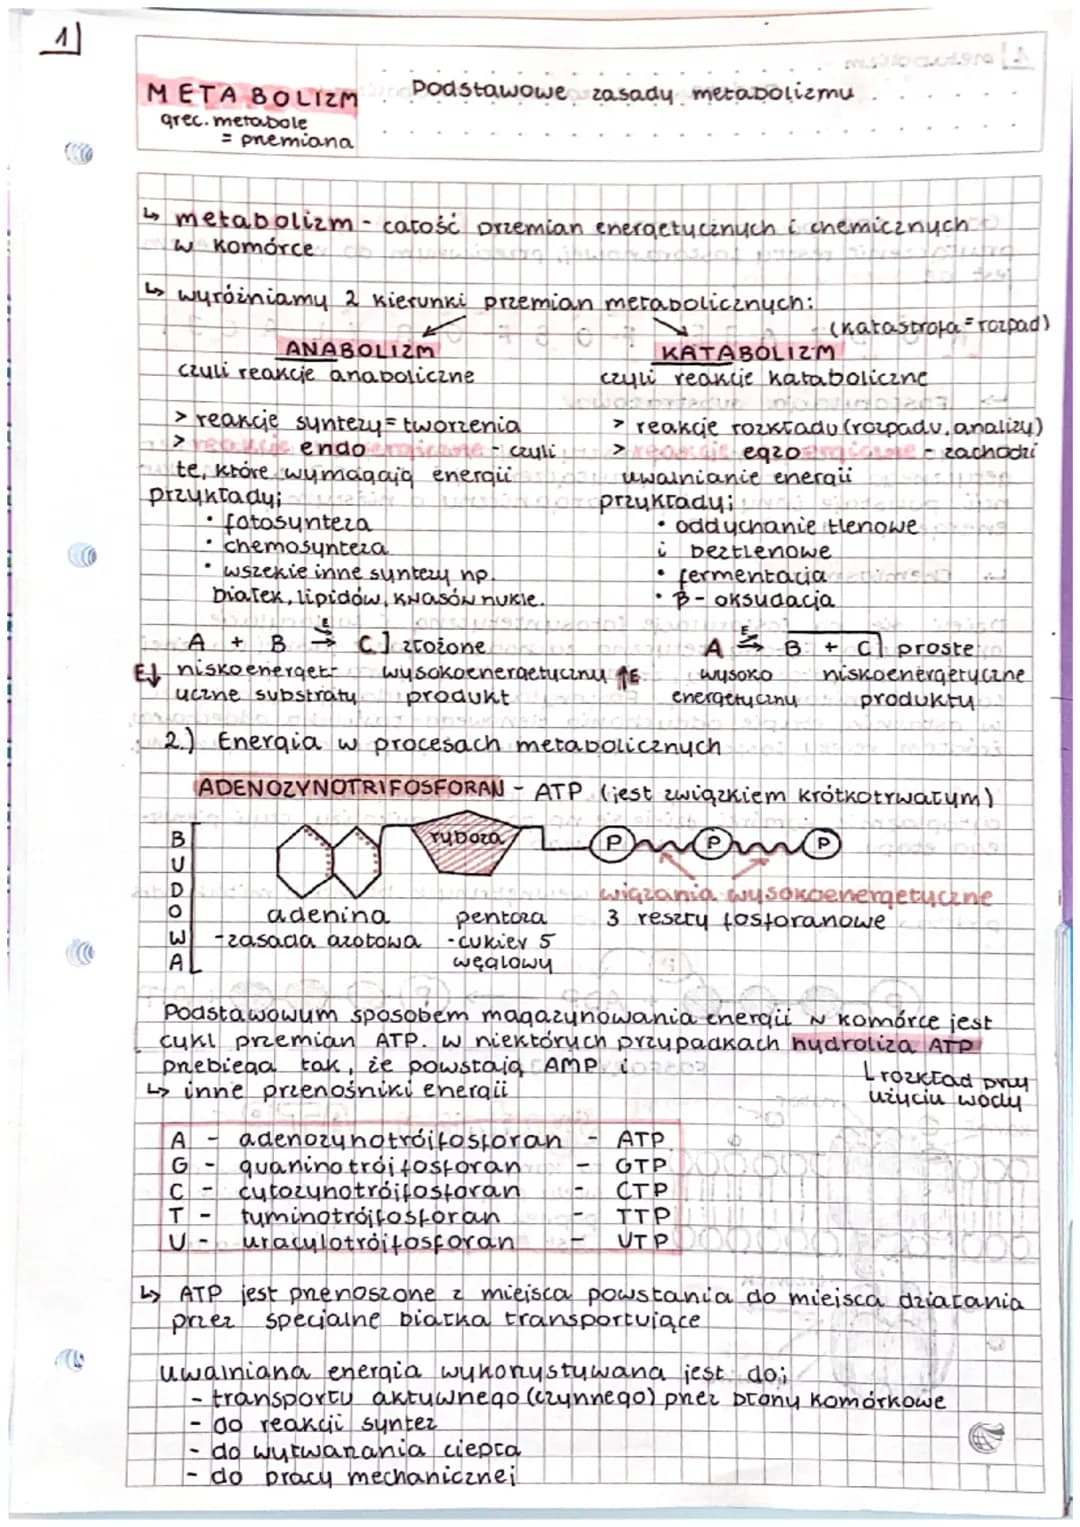 1)
METABOLIZM
Podstawowe zasady metabolizmu
grec. metabole
= przemiana
↳ metabolizm - całość przemian energetycznych i chemicznych
w komórce
↳ wyróżniamy 2 kierunki przemian metabolicznych:
(katastrofa = rozpad)
ANABOLIZM KATABOLIZM
czyli reakcje anaboliczne czyli reakcje kataboliczne
> reakcje syntezy = tworzenia > reakcje rozkładu (rozpadu, analizy)
> reakcje endoergiczne - czyli > reakcje egzoergiczne - zachodzi
te, które wymagają energii uwalnianie energii
przykłady; przykłady;
• fotosynteza • oddychanie tlenowe
• chemosynteza i beztlenowe
• wszekie inne syntezy np. • fermentacja
białek, lipidów, kwasów nukle. • β-oksydacja
A + B E⇉ C] złożone A E⇉ B + C] proste
E↓ niskoenerget- wysokoenergetyczny ↑E wysoko niskoenergetyczne
yczne substraty produkt energetyczny produkty
2.) Energia w procesach metabolicznych
ADENOZYNOTRIFOSFORAN - ATP (jest związkiem krótkotrwałym)
BUDOWA
ryboza P P P
wiązania wysokoenergetyczne
adenina pentoza 3 reszty fosforanowe
-zasada azotowa -cukier 5
węglowy
Podstawowym sposobem magazynowania energii w komórce jest
cykl przemian ATP. W niektórych przypadkach hydroliza ATP
przebiega tak, że powstają AMP i
└ rozkład przy
↳ inne przenośniki energii
użyciu wody
A - adenozynotrójfosforan - ATP
G - guaninotrójfosforan - GTP
C - cytozynotrójfosforan - CTP
T - tyminotrójfosforan - TTP
U - uracylotrójfosforan - UTP
↳ ATP jest przenoszone z miejsca powstania do miejsca działania
przez specjalne białka transportujące
uwalniana energia wykorzystywana jest do;
- transportu aktywnego (czynnego) przez błony komórkowe
- do reakcji syntez
- do wytwarzania ciepła
- do pracy mechanicznej